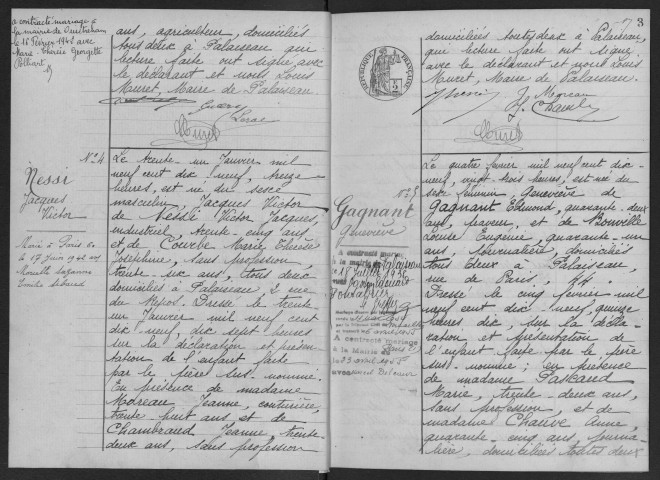 a contracté mariage à
la mairie de Ouistreham
le 16 Février 1945 avec
Marie Thérèse Georgette
ans, agriculteur, domiciliés
tous deux à Palaiseau qui
lecture faite ont signé avec
le déclarant et nous Louis
Muret, Maire de Palaiseau.
Muret
N° 4
Nessi
Jacques
Victor
Marié à Paris 6e
le 17 Juin 1942 avec
Le trente un Janvier mil
neuf cent dix neuf, treize
heures, est né du sexe
masculin, Jacques Victor
de Nessi Victor Jacques,
industriel, trente cinq ans
et de Courbe Marie Thérèse
Joséphine, sans profession
trente six ans, tous deux
domiciliés à Palaiseau 2 rue
du Repos. Dressé le trente
un Janvier mil neuf cent
dix neuf, dix sept heures
sur la déclaration et présen-
tation de l'enfant faite
par le père sus-nommé.
En présence de madame
Moreau Jeanne, couturière,
trente huit ans et de
Chambraud Jeanne, trente-
deux ans, sans profession
3
domiciliées toutes deux à Palaiseau,
qui lecture faite ont signé
avec le déclarant et nous Louis
Muret, Maire de Palaiseau.
RÉPUBLIQUE FRANÇAISE
J. Moreau
Muret
N° 5
Gagnant
Geneviève
A contracté mariage
à la mairie de Palaiseau
A contracté mariage
à la Mairie de
le 23 avril 1955
avec
Le quatre février mil neuf cent dix-
neuf, vingt trois heures, est née du
sexe féminin, Geneviève de
Gagnant Edmond, quarante-deux
ans, paveur, et de Bonville
Louise Eugénie, quarante un
ans, journalière, domiciliés
tous deux à Palaiseau,
rue de Paris,
Dressé le cinq février mil
neuf cent dix neuf, quinze
heures dix, sur la décla-
ration et présentation de
l'enfant faite par le père
sus-nommé; en présence
de madame Pascaud
Marie, trente-deux ans,
sans profession, et de
madame Chauve Anne,
quarante-cinq ans, journa-
lière, domiciliées toutes deux